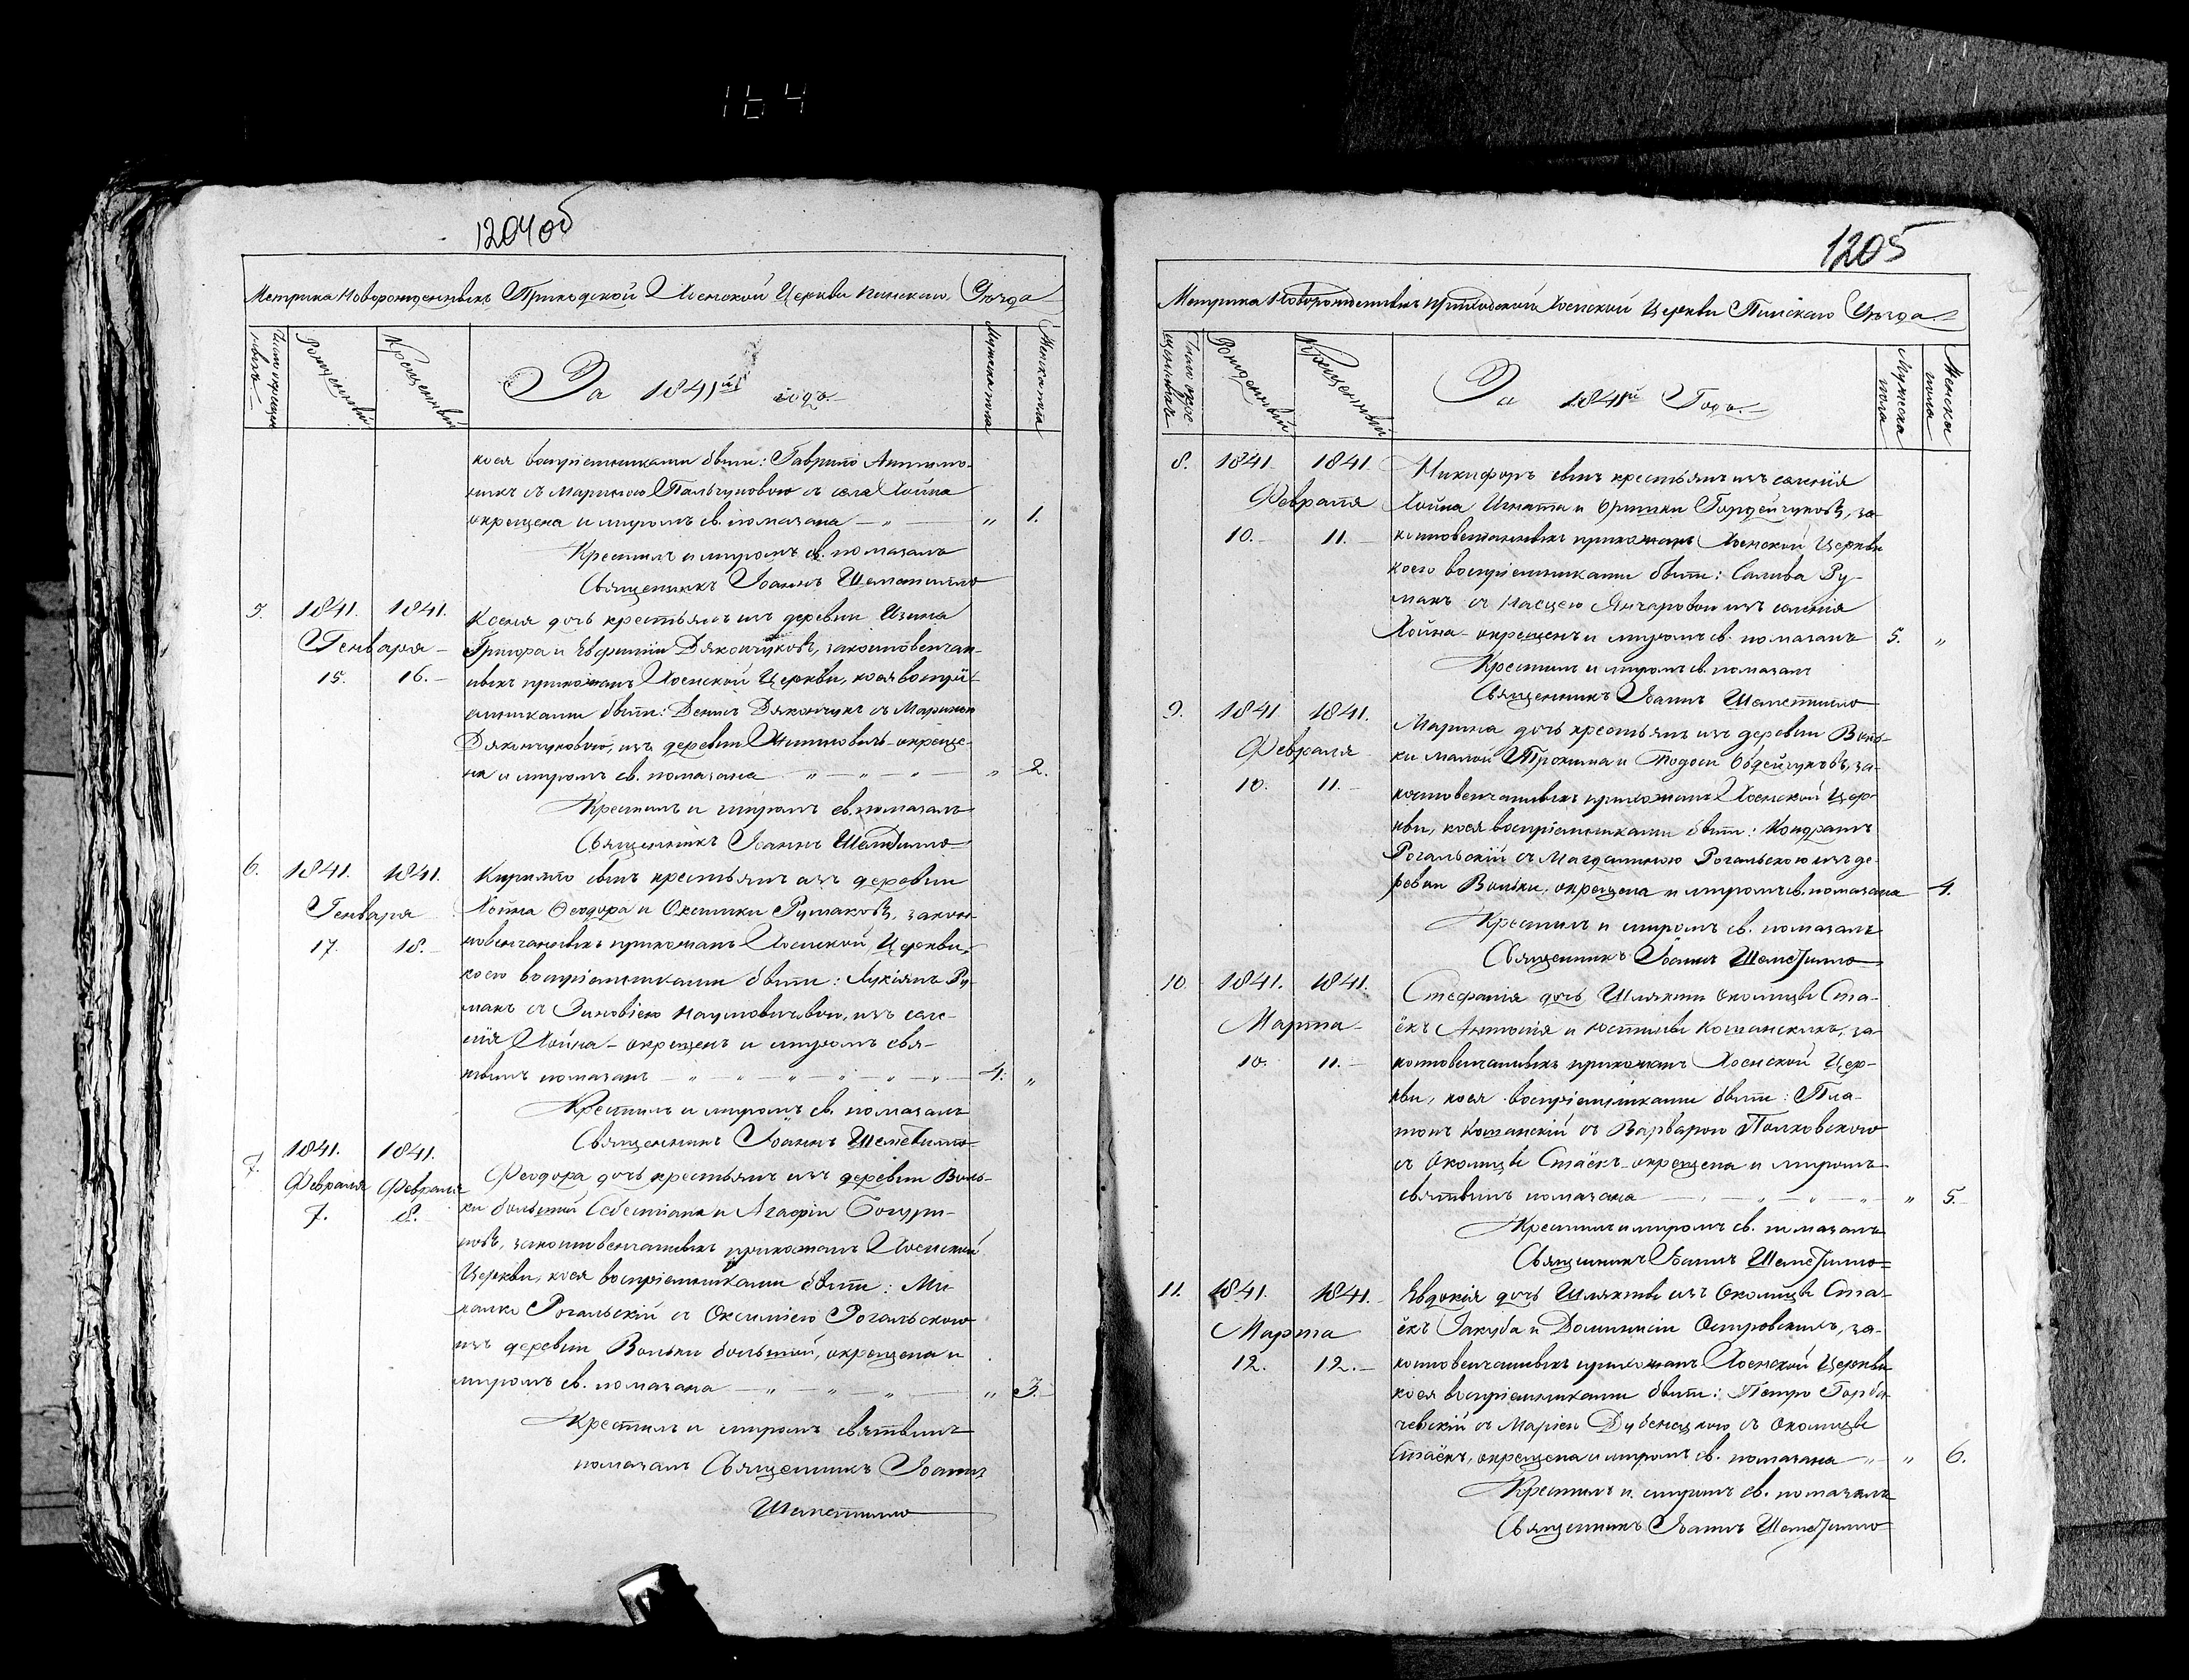 164
1204об
Метрика Новорожденныхъ Приходской Хоенской Церкви Пинскаго Уѣзда
Рожденный
Крещенный
За 1841й годъ.
Мужска пола
Женска пола
коея воспріемниками были: Гаврило
съ Мариною съ села Хойна
окрещена и миромъ св. помазана — „ — „ 1.
Крестилъ и миромъ св. помазалъ
Священникъ Іоаннъ Шеметилло
5. 1841. 1841. Ксенія дочь крестьянъ изъ деревни Изина
Генваря Григора и Евфиміи Дякончуковъ, законновенчан-
15. 16. ныхъ прихожанъ Хоенской Церкви, коея воспрі-
емниками были: Денисъ Дякончукъ съ Мариною
Дякончуковою, изъ деревни окреще-
на и миромъ св. помазана — „ — „ — „ — „ 2.
Крестилъ и миромъ св. помазалъ
Священникъ Іоаннъ Шеметилло
6. 1841. 1841. Кирилло сынъ крестьянъ изъ деревни
Генваря Хойна Ѳеодора и Оксимки Румаковъ, закон-
17. 18. новенчанныхъ прихожанъ Хоенской Церкви,
коего воспріемниками были: Лукіянъ Ру-
макъ съ Зиновіею Наумовичевою, изъ селе-
нія Хойна — окрещенъ и миромъ свя-
тымъ помазанъ — „ — „ — „ — „ — „ — „ — 4. „
Крестилъ и миромъ св. помазалъ
Священникъ Іоаннъ Шеметилло
7. 1841. 1841. Феодора дочь крестьянъ изъ деревни Воль-
Февраля Февраля ки большой Себестіана и Агафіи
7. 8. законновенчанныхъ прихожанъ Хоенской
Церкви, коея воспріемниками были: Ми-
халко Рогальскій съ Оксиміею Рогальскою
изъ деревни Вольки большой, окрещена и
миромъ св. помазана — „ — „ — „ — „ 3.
Крестилъ и миромъ святымъ
помазалъ Священникъ Іоаннъ
Шеметилло
1205
Метрика Новорожденныхъ Приходской Хоенской Церкви Пинскаго Уѣзда.
Рожденный
Крещенный
За 1841й Годъ.
Мужска пола
Женска пола
8. 1841. 1841. Никифоръ сынъ крестьянъ изъ селенія
Февраля Хойна Игната и Гордейчуковъ, за-
10. 11. конновенчанныхъ прихожанъ Хоенской Церкви
коего воспріемниками были: Савва Ру-
макъ съ Насцею Янчаровою изъ селенія
Хойна — окрещенъ и миромъ св. помазанъ 5. „
Крестилъ и миромъ св. помазалъ
Священникъ Іоаннъ Шеметилло
9. 1841. 1841. Марина дочь крестьянъ изъ деревни Воль-
Февраля ки малой Трохима и Тодоси за-
10. 11. конновенчанныхъ прихожанъ Хоенской Цер-
кви, коея воспріемниками были: Кондратъ
Рогальскій съ Магдалиною Рогальскою изъ де-
ревни Вольки, окрещена и миромъ св. помазана 4.
Крестилъ и миромъ св. помазалъ
Священникъ Іоаннъ Шеметилло
10. 1841. 1841. Стефанія дочь Шляхты Околицы Ста-
Марта ёкъ Антонія и Юстины Кошанскихъ, за-
10. 11. конновенчанныхъ прихожанъ Хоенской Цер-
кви, коея воспріемниками были: Пла-
тонъ Кошанскій съ Варварою Полховскою
съ Околицы Стаёкъ — окрещена и миромъ
святымъ помазана — „ — „ — „ — „ 5.
Крестилъ и миромъ св. помазалъ
Священникъ Іоаннъ Шеметилло
11. 1841. 1841. Евдокія дочь Шляхты изъ Околицы Ста-
Марта ёкъ Якуба и Доминисіи Островскихъ, за-
12. 12. конновенчанныхъ прихожанъ Хоенской Церкви
коея воспріемниками были: Петро Горба-
чевскій съ Маріею Дубенецкою съ Околицы
Стаёкъ, окрещена и миромъ св. помазана — „ — „ 6.
Крестилъ и миромъ св. помазалъ
Священникъ Іоаннъ Шеметилло